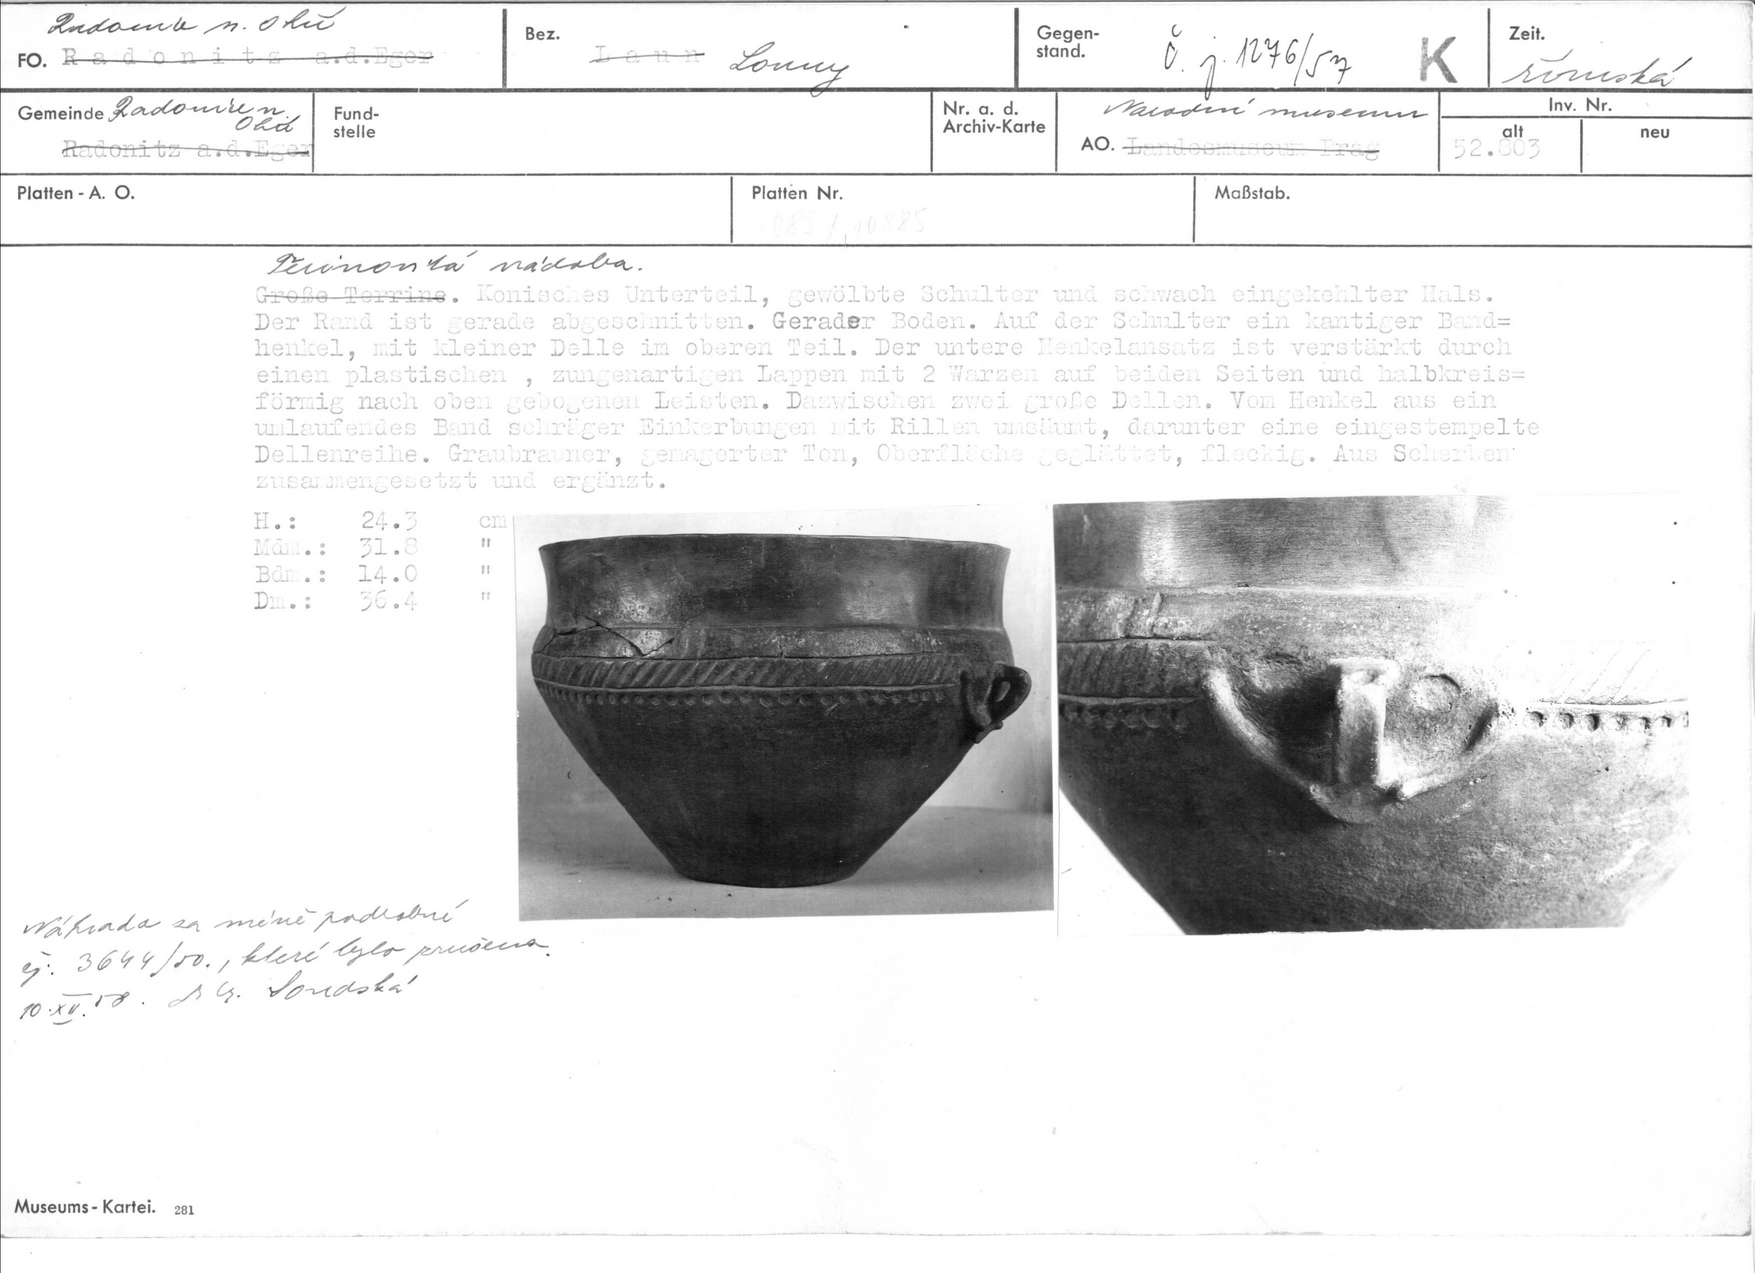 Radonice n. Ohří
FO. Radonitz a.d.Eger
Bez.
Laun Louny
Gegen-
stand.
Č. j. 1276/57
K
Zeit.
římská
Gemeinde Radonice n.
Ohří
Radonitz a.d.Eger
Fund-
stelle
Nr. a. d.
Archiv-Karte
Národní museum
AO. Landesmuseum Prag
Inv. Nr.
alt
52.803
neu
Platten - A. O.
Platten Nr.
10885
Maßstab.
Terinovitá nádoba.
Große Terrine. Konisches Unterteil, gewölbte Schulter und schwach eingekehlter Hals.
Der Rand ist gerade abgeschnitten. Gerader Boden. Auf der Schulter ein kantiger Band=
henkel, mit kleiner Delle im oberen Teil. Der untere Henkelansatz ist verstärkt durch
einen plastischen , zungenartigen Lappen mit 2 Warzen auf beiden Seiten und halbkreis=
förmig nach oben gebogenen Leisten. Dazwischen zwei große Dellen. Vom Henkel aus ein
umlaufendes Band schräger Einkerbungen mit Rillen umsäumt, darunter eine eingestempelte
Dellenreihe. Graubrauner, gemagerter Ton, Oberfläche geglättet, fleckig. Aus Scherben
zusammengesetzt und ergänzt.
H.: 24.3 cm
Mdm.: 31.8 "
Bdm.: 14.0 "
Dm.: 36.4 "
Náhrada za méně podrobné
čj. 3644/50., které bylo zničeno.
10.XII.58. Soudská
Museums - Kartei. 281